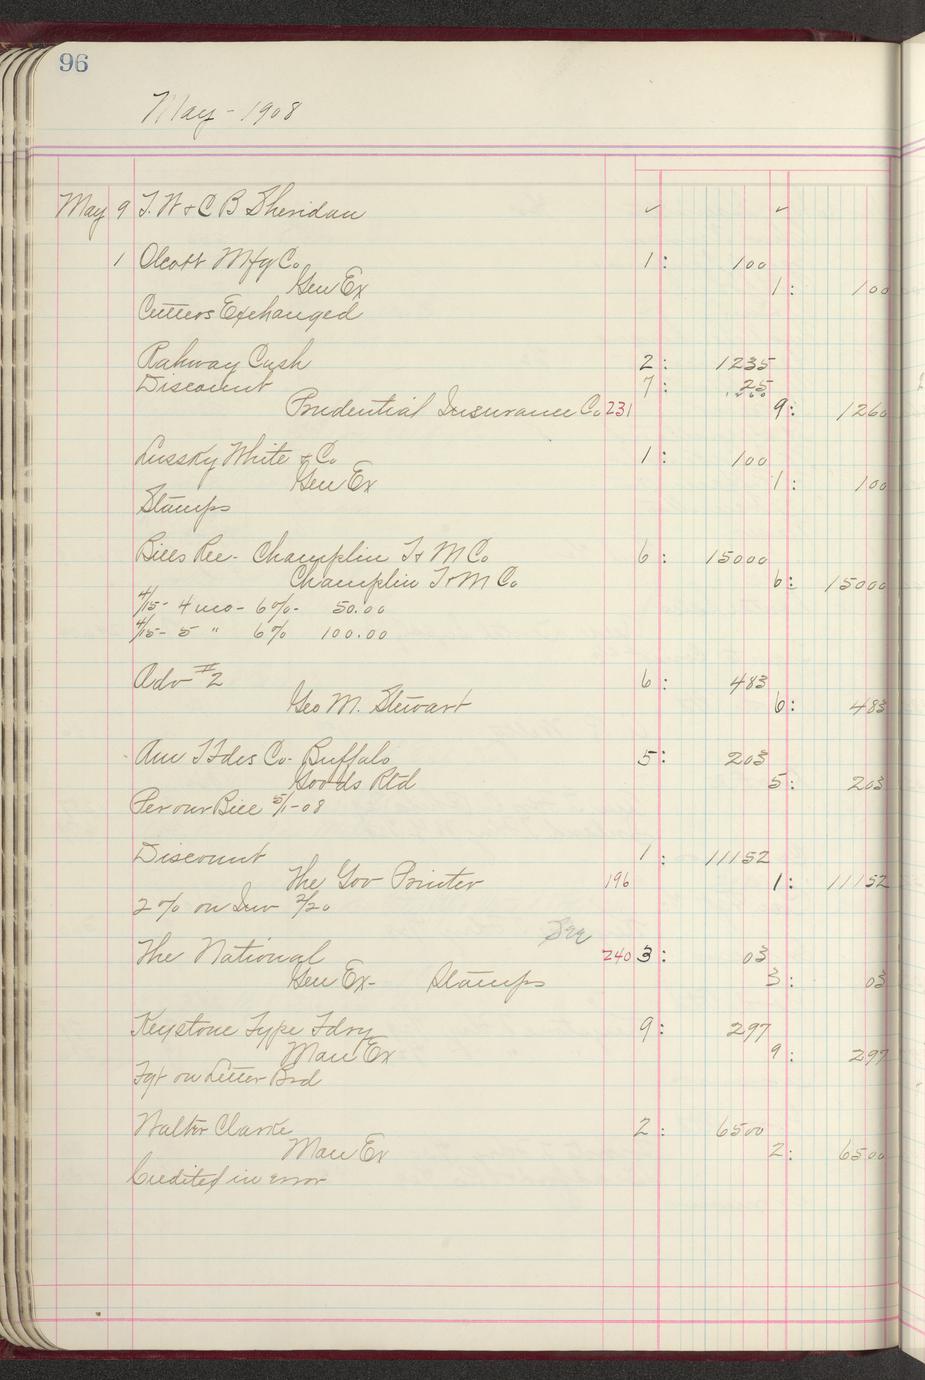 96
May - 1908
May 9 T. W & C B Sheridan ✓ ✓
1 Olcott Mfg Co 1: 100
Gen Ex 1: 100
Cutters Exchanged
Rahway Cash 2: 1235
Discount 7: 25
Prudential Insurance Co 231 9: 1260
Lussky White & Co 1: 100
Gen Ex 1: 100
Stamps
Bills Rec - Champlin T & M Co 6: 15000
Champlin T & M Co 6: 15000
4/15 - 4 mo - 6% - 50.00
4/15 - 5 " 6% 100.00
Adv #2 6: 483
Geo M. Stewart 6: 483
Am T Fdrs Co - Buffalo 5: 203
Goods Rtd 5: 203
Per our Bill 5/1-08
Discount 1: 11152
The Gov Printer 196 1: 11152
2% on Inv 2/20
See
The National 240 3: 03
Gen Ex - Stamps 3: 03
Keystone Type Fdry 9: 297
Man Ex 9: 297
Fgt on Letter Brd
Walter Clarke 2: 6500
Man Ex 2: 6500
Credited in error